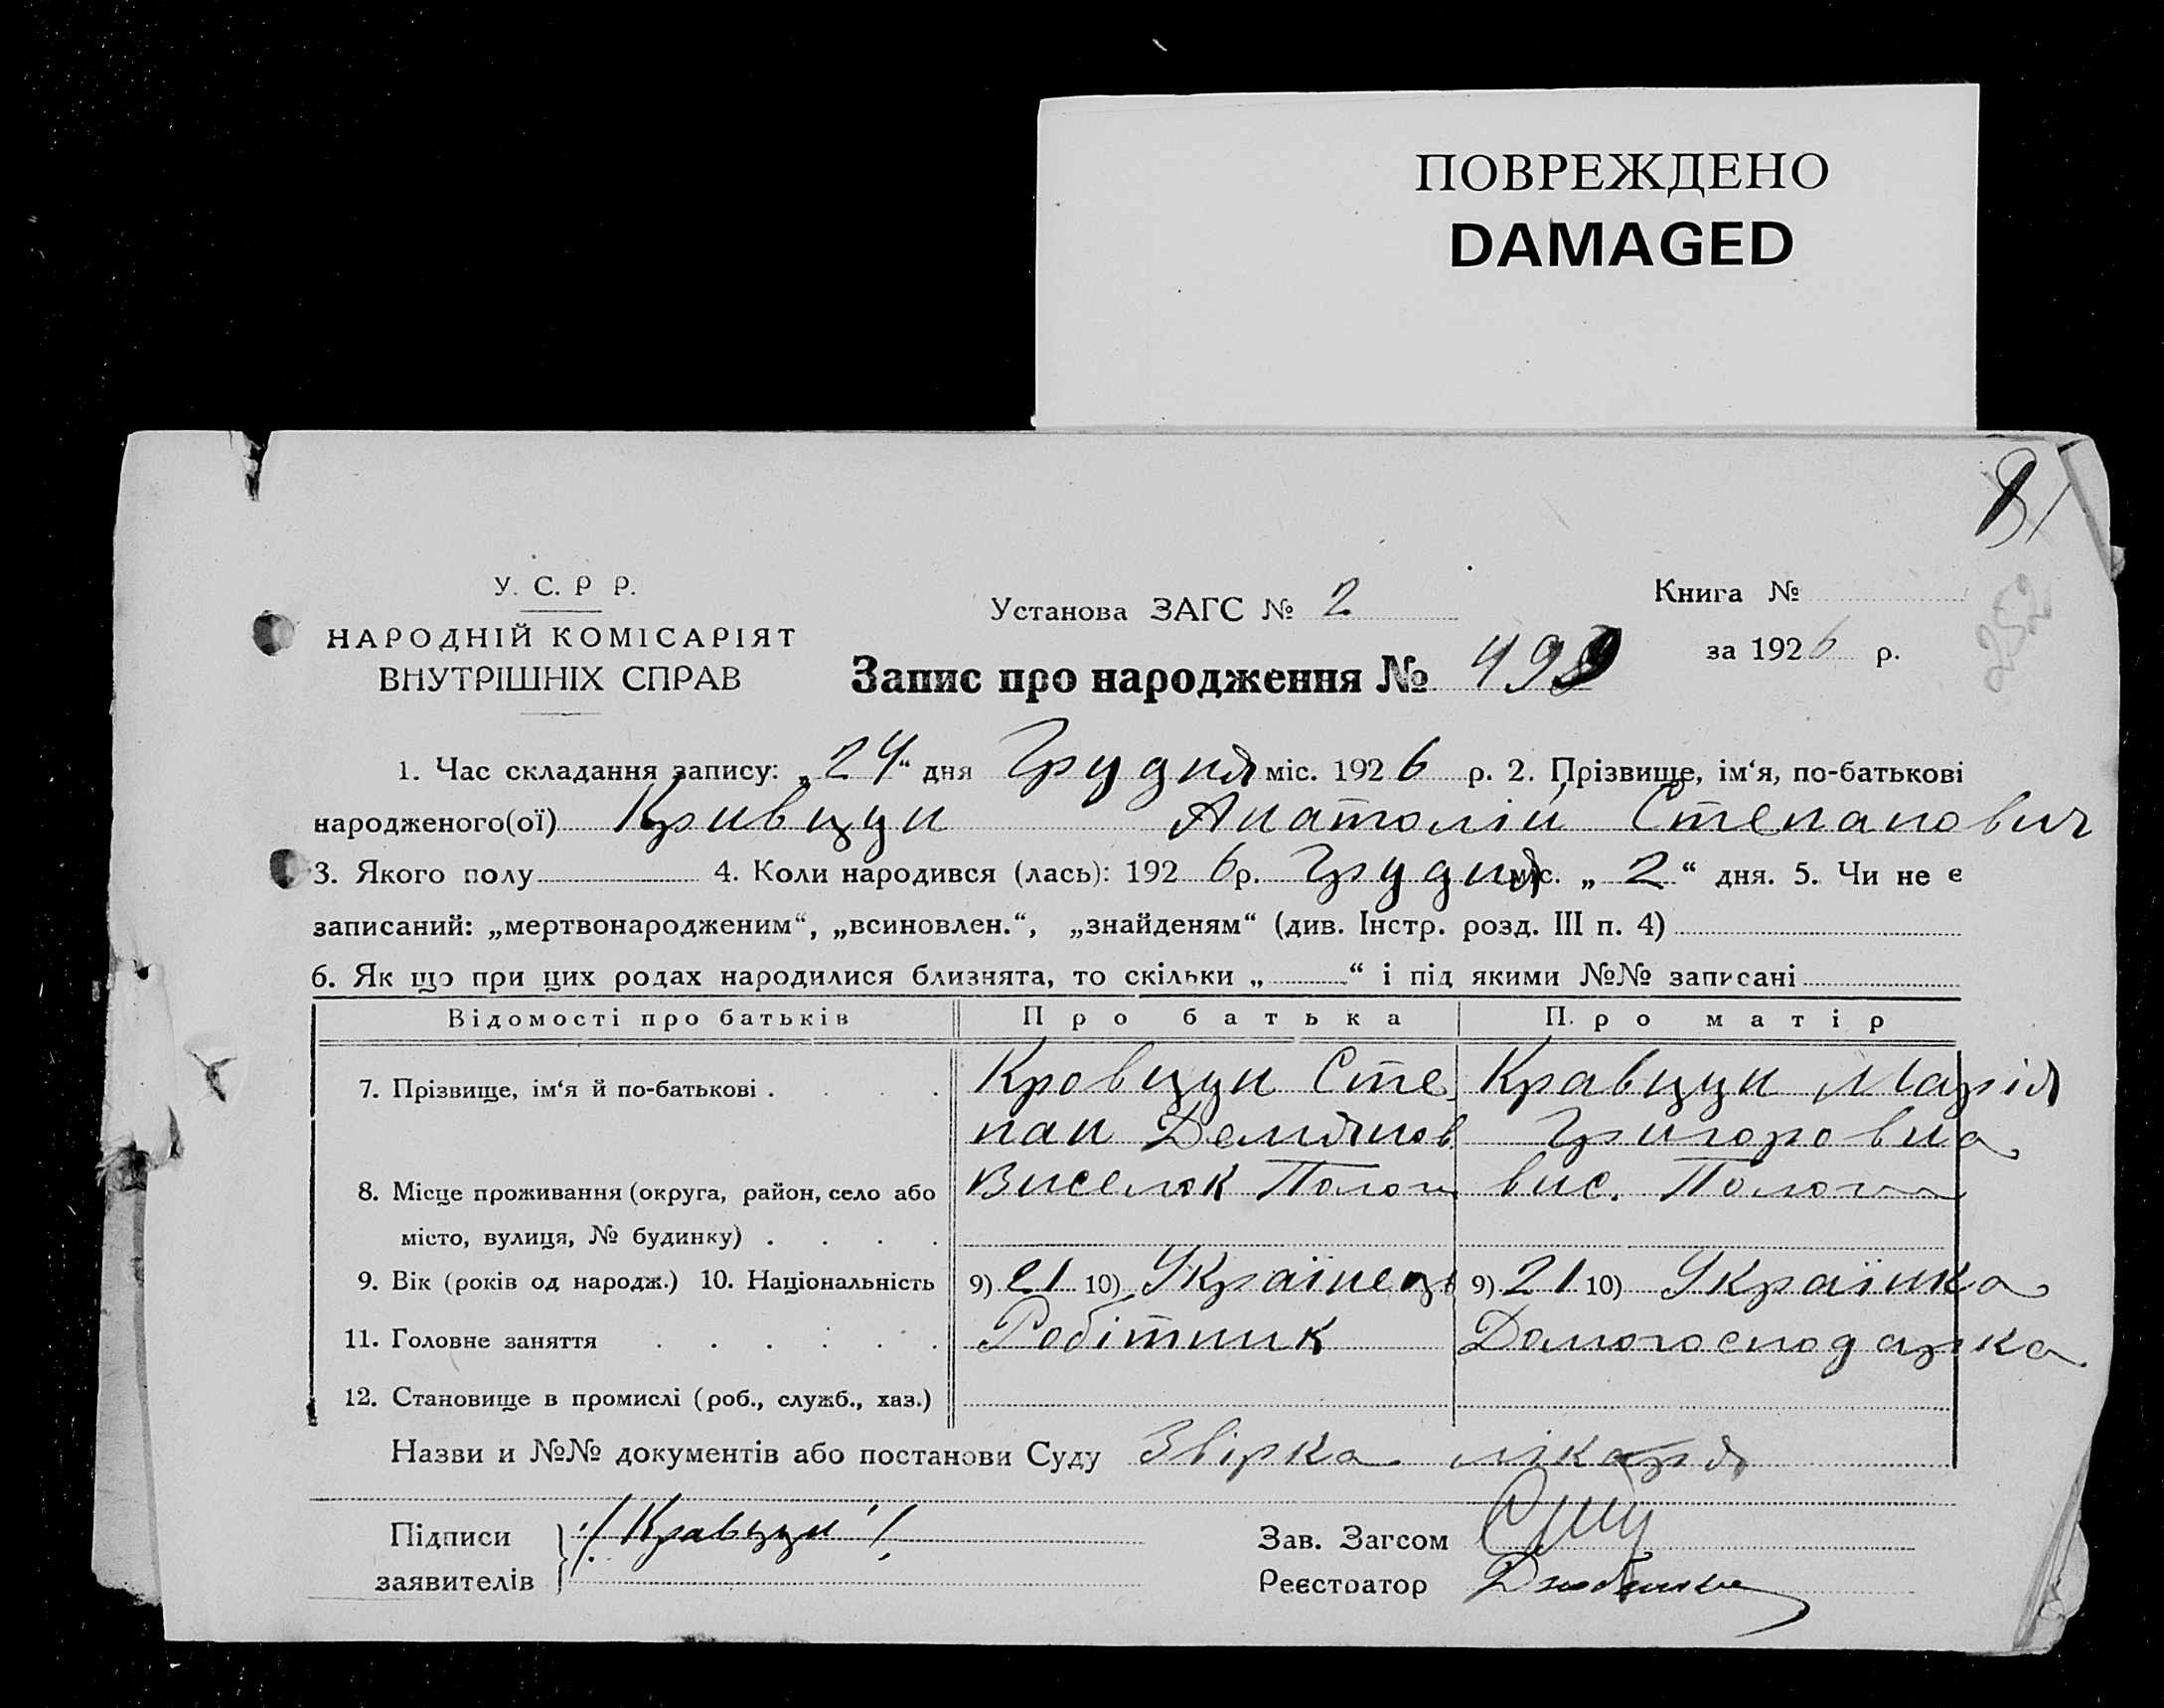 ПОВРЕЖДЕНО
DAMAGED
У. С. Р Р.
НАРОДНІЙ КОМІСАРІЯТ
ВНУТРІШНІХ СПРАВ
Установа ЗАГС № 2
Книга №
за 1926 р.
252
Запис про народження № 499
1. Час складання запису: „24“ дня Грудня міс. 1926 р. 2. Прізвище, ім‘я, по-батькові
народженого(ої) Кривцун Анатолій Степанович
3. Якого полу 4. Коли народився (лась): 1926 р. Грудня міс. „2“ дня. 5. Чи не є
записаний: „мертвонародженим“, „всиновлен.“, „знайденям“ (див. Інстр. розд. III п. 4)
6. Як що при цих родах народилися близнята, то скільки „ “ і під якими №№ записані
Відомості про батьків Про батька П.ро матір
7. Прізвище, ім‘я й по-батькові . . . . Кровцун Сте Кравцун Марія
пан Демянов. Григоровна
8. Місце проживання (округа, район, село або Виселок Пологи вис. Пологи
місто, вулиця, № будинку) . . . .
9. Вік (років од народж.) 10. Національність 9) 21 10) Українець 9) 21 10) Українка
11. Головне заняття . . . . . . Робітник Домогосподарка
12. Становище в промислі (роб., служб., хаз.)
Назви и №№ документів або постанови Суду Звірка лікаря
Підписи /Кравцун/
заявителів
Зав. Загсом
Реєстратор